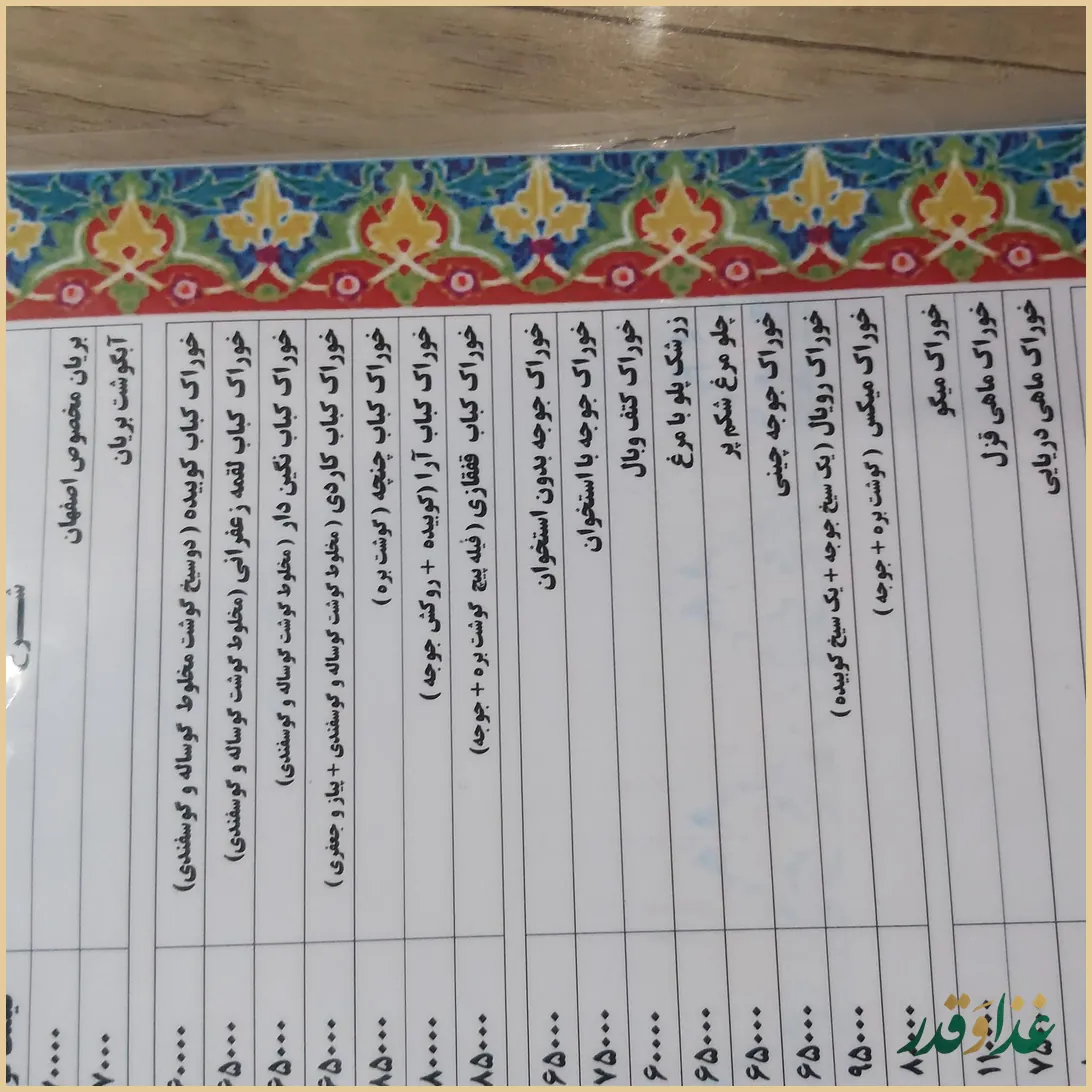 شــرح
بریان مخصوص اصفهان
آبگوشت بریان
خوراک کباب کوبیده (دوسیخ گوشت مخلوط گوساله و گوسفندی)
خوراک کباب لقمه زعفرانی (مخلوط گوشت گوساله و گوسفندی) ۶۵۰۰۰
خوراک کباب نگین دار (مخلوط گوشت گوساله و گوسفندی) ۶۵۰۰۰
خوراک کباب کاردی (مخلوط گوشت گوساله و گوسفندی + پیاز و جعفری) ۶۵۰۰۰
خوراک کباب چنجه (گوشت بره) ۸۵۰۰۰
خوراک کباب آرا (کوبیده + روکش جوجه) ۸۰۰۰۰
خوراک کباب قفقازی (فیله پیچ گوشت بره + جوجه) ۸۵۰۰۰
خوراک جوجه بدون استخوان ۶۵۰۰۰
خوراک جوجه با استخوان ۷۵۰۰۰
خوراک کتف وبال ۶۰۰۰۰
زرشک پلو با مرغ ۶۵۰۰۰
چلو مرغ شکم پر ۶۵۰۰۰
خوراک جوجه چینی ۶۵۰۰۰
خوراک رویال (یک سیخ جوجه + یک سیخ کوبیده) ۹۵۰۰۰
خوراک میکس (گوشت بره + جوجه) ۸۰۰۰۰
خوراک میگو ۱۱۰۰۰۰
خوراک ماهی قزل ۷۵۰۰۰
خوراک ماهی دریایی
غذا و قدر